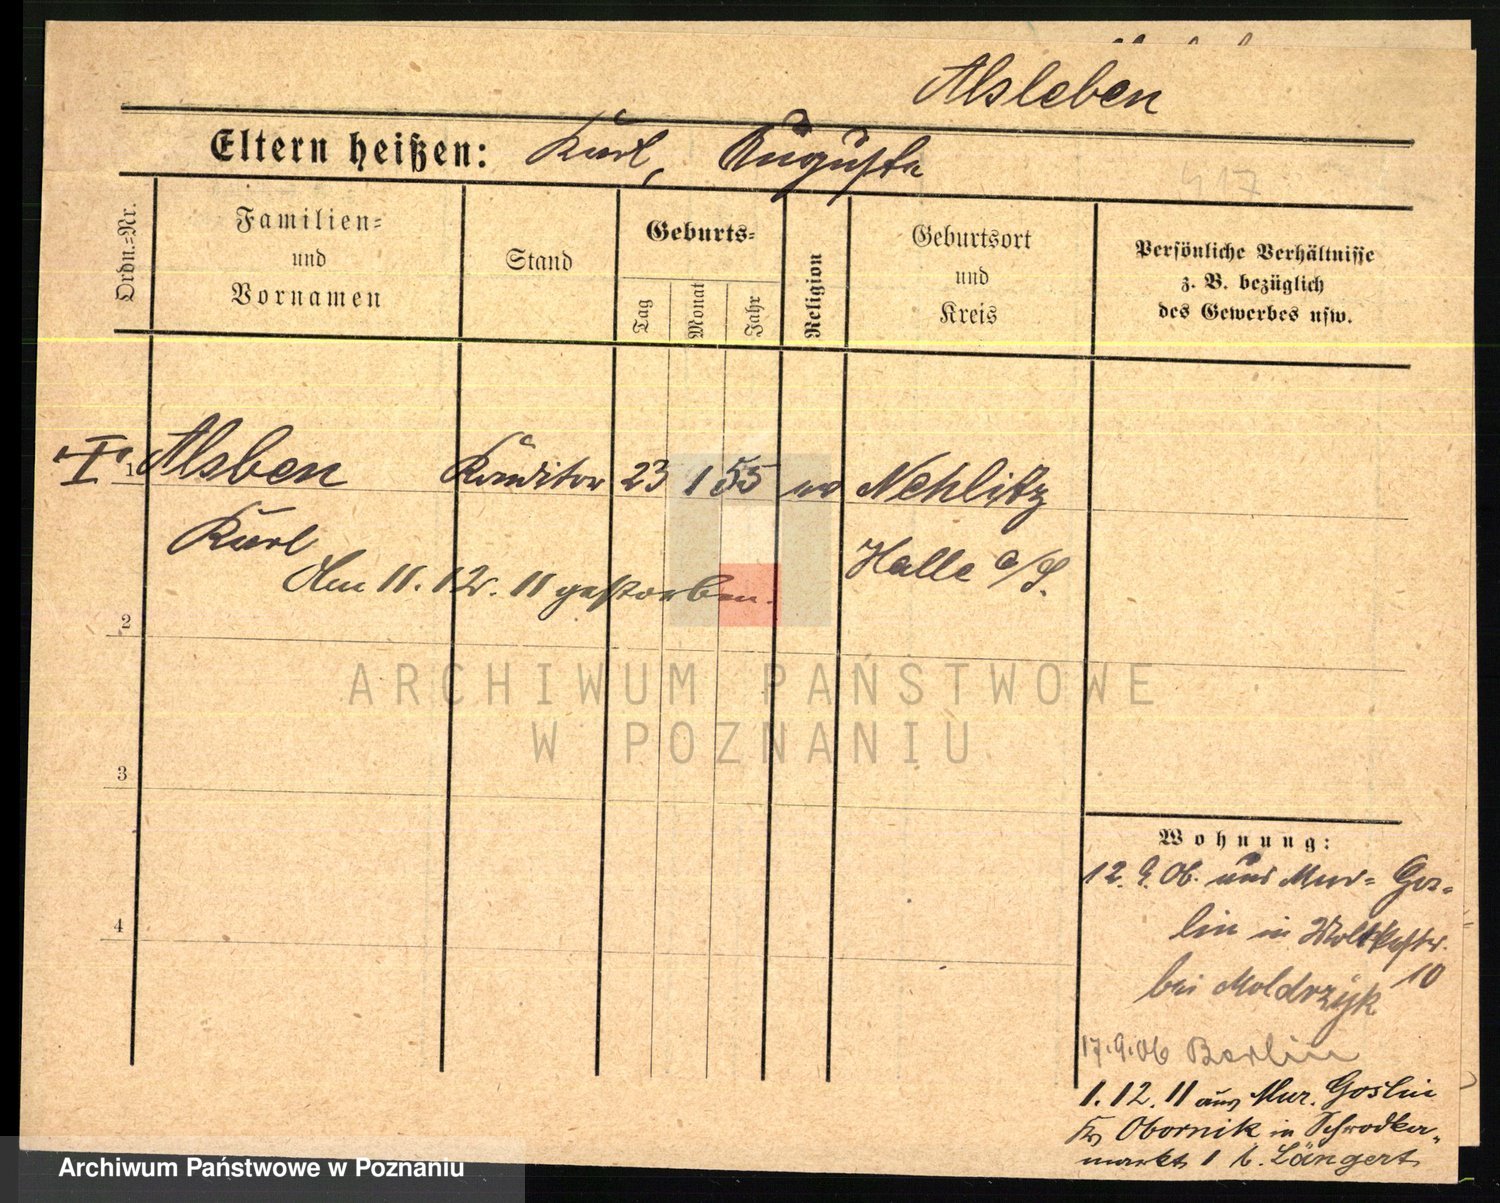 Alsleben
Eltern heißen: Karl, Auguste
417
Ordn.=Nr.
Familien=
und
Vornamen
Stand
Geburts=
Tag
Monat
Jahr
Religion
Geburtsort
und
Kreis
Persönliche Verhältnisse
z. B. bezüglich
des Gewerbes usw.
1 Alsben Konditor 23 1 55 ev Nehlitz
Karl Halle a/S.
Am 11. 12. 11 gestorben.
2
3
4
Wohnung:
12. 9. 06. aus Mur= Gos=
lin in Moltkestr.
10
bei Moldrzyk
17.9.06 Berlin
1. 12. 11 aus Mur. Goslin
Kr Obornik in Schrodker
markt 1 b. Längert
ARCHIWUM PAŃSTWOWE
W POZNANIU
Archiwum Państwowe w Poznaniu